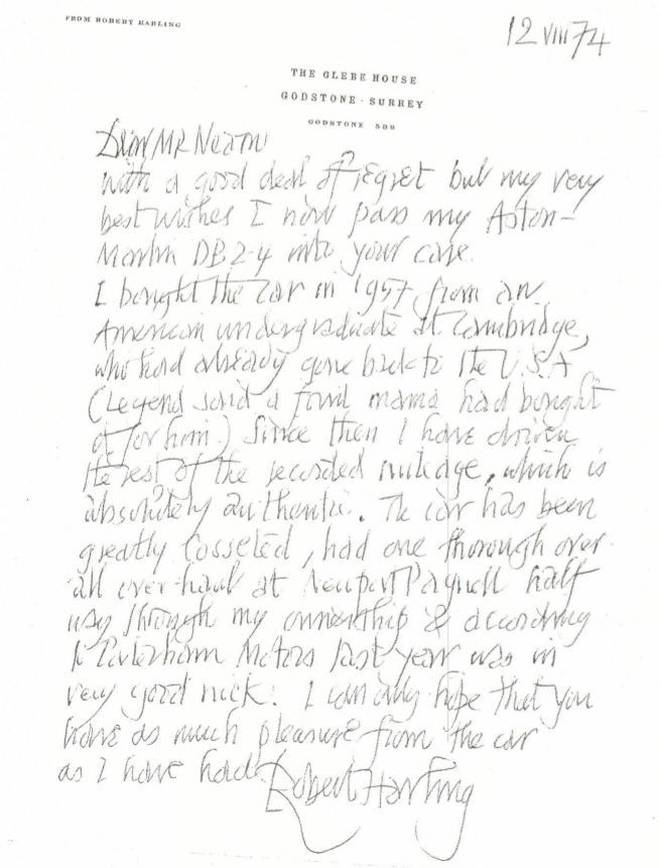 FROM ROBERT HARLING
12 VIII 74
THE GLEBE HOUSE
GODSTONE · SURREY
GODSTONE
Dear Mr
with a good deal of regret but my very
best wishes I now pass my Aston-
Martin DB2-4 into your care.
I bought the car in 1957 from an
American undergraduate at Cambridge,
who had already gone back to the U.S.A
(Legend said a fond mama had bought
it for him.) Since then I have driven
the rest of the recorded mileage, which is
absolutely authentic. The car has been
greatly cosseted, had one thorough over-
all over-haul at Newport Pagnell half
way through my ownership & according
to Caterham Motors last year was in
very good nick. I can only hope that you
have as much pleasure from the car
as I have had.
Robert Harling